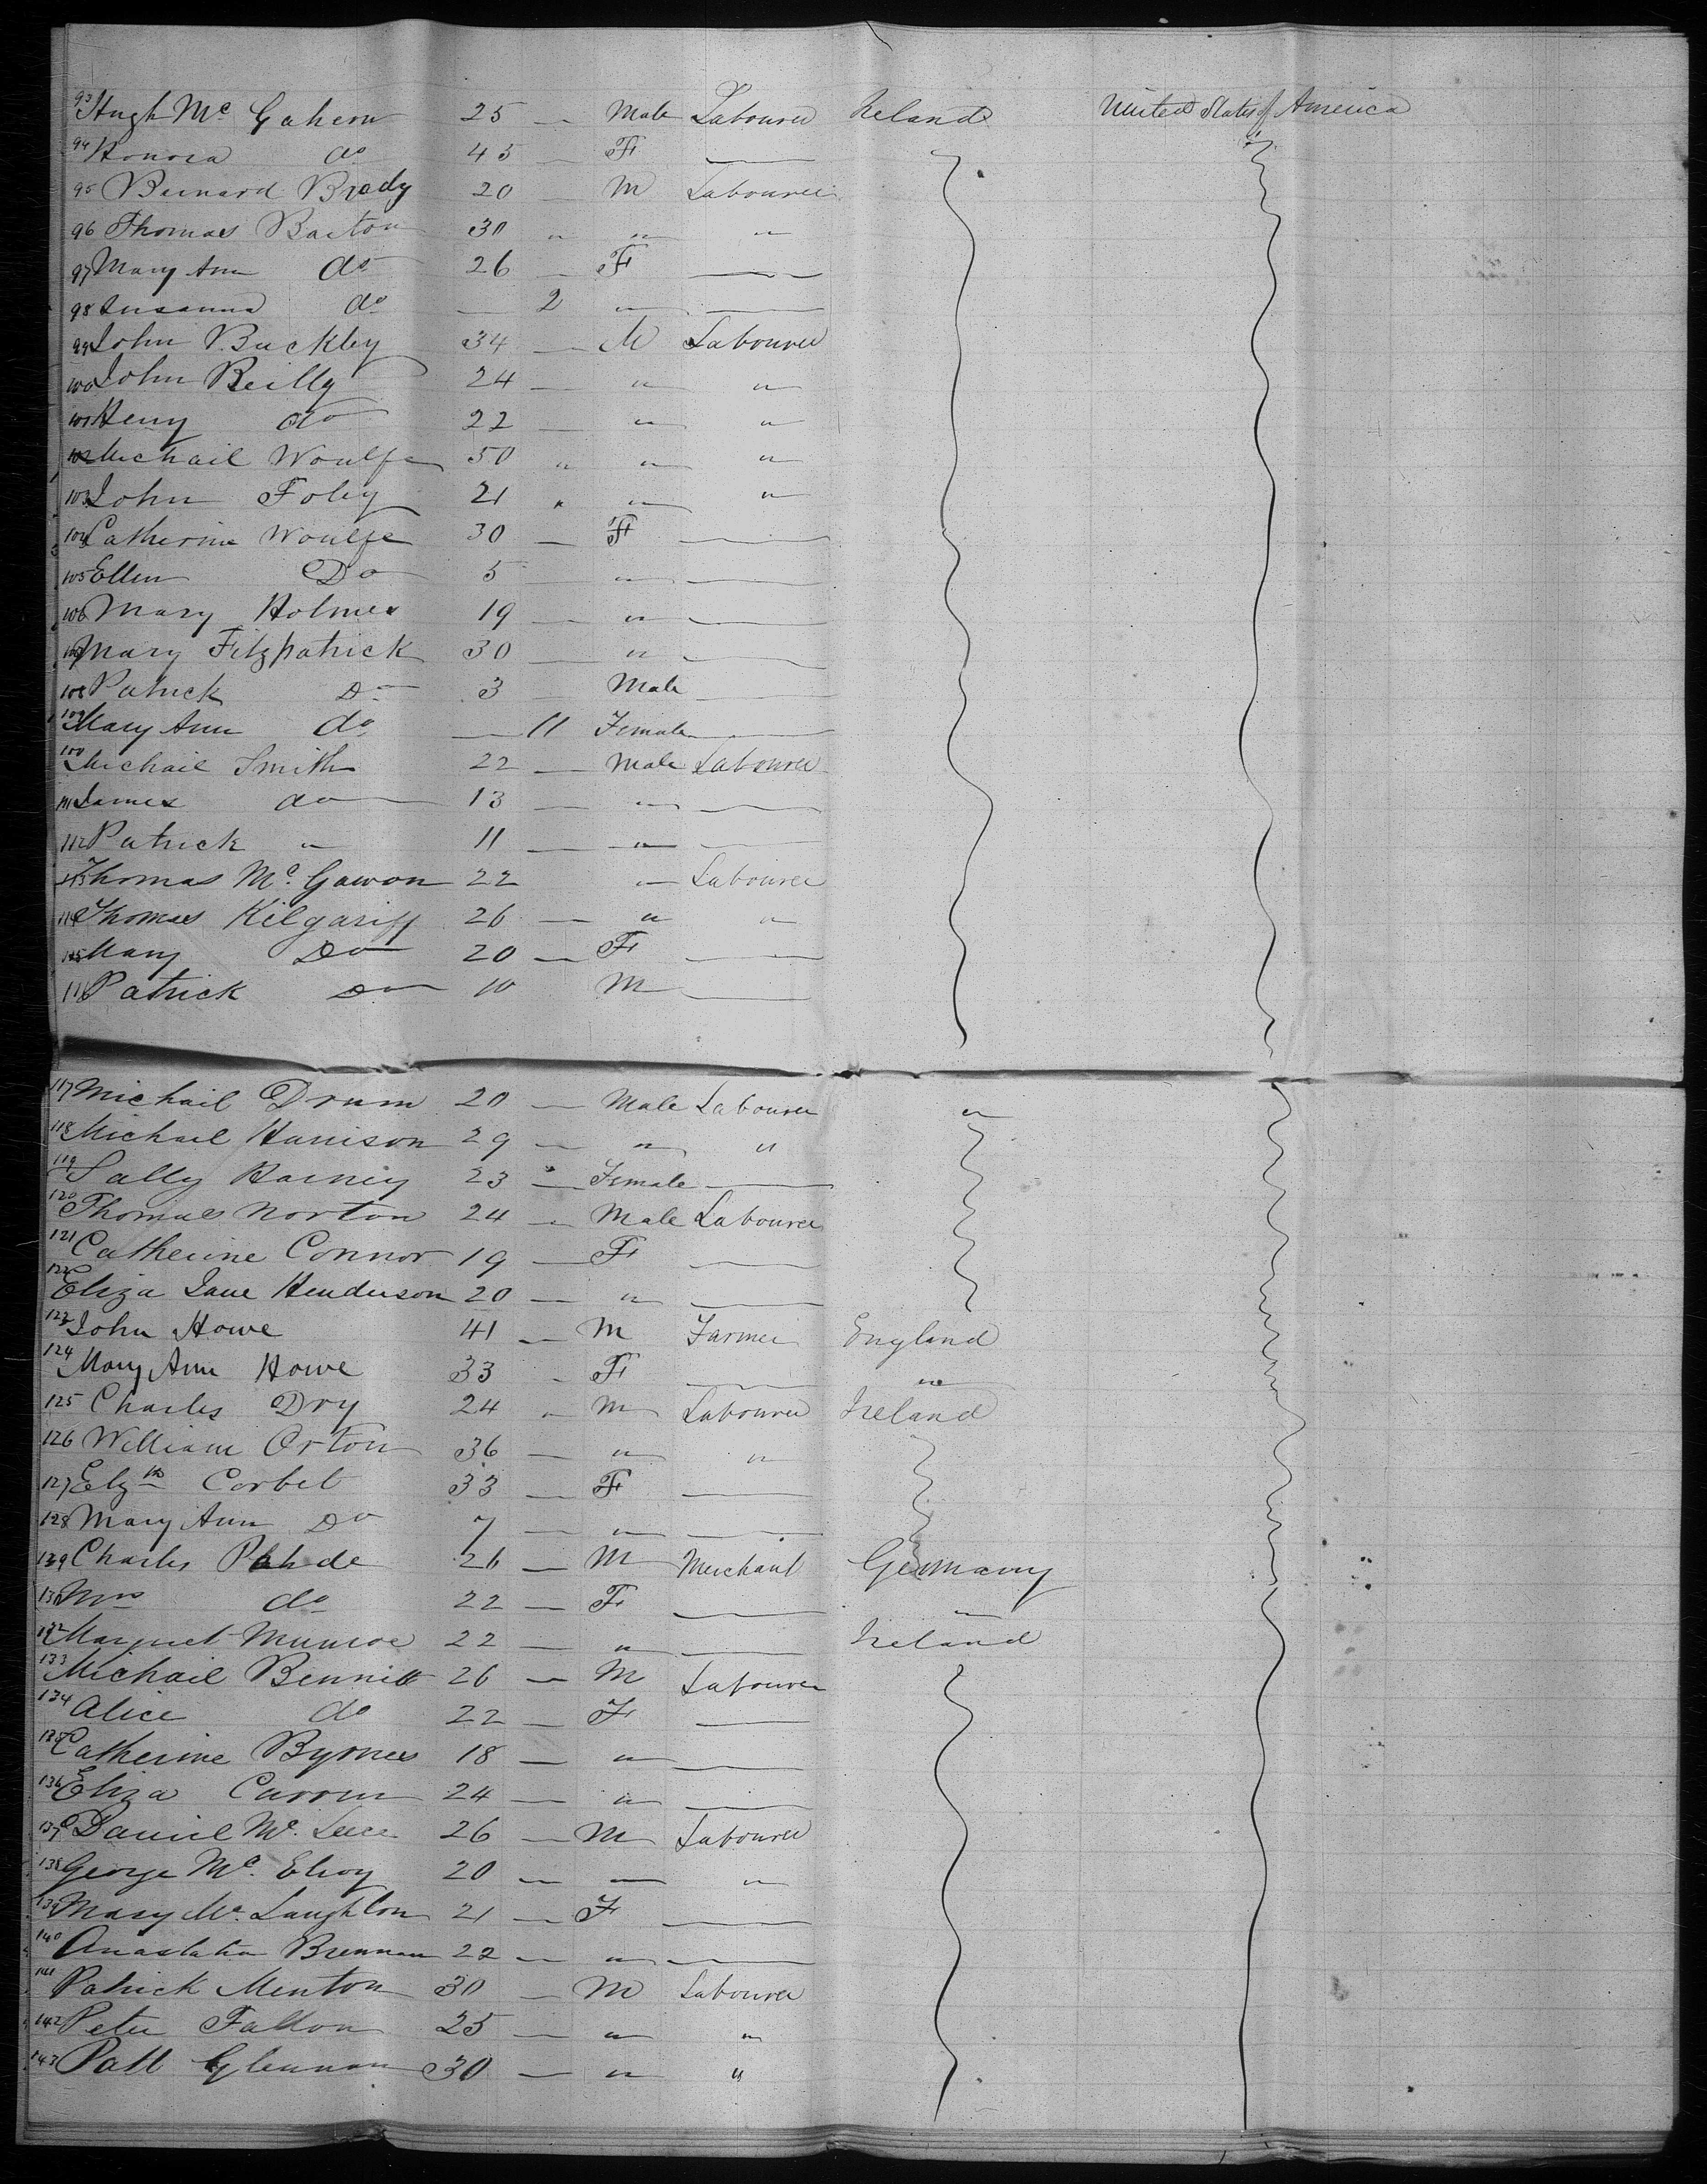 93 Hugh Mc Gahern 25 — Male Labourer Ireland United States of America
94 Honora do 45 — F —
95 Bernard Brady 20 — M Labourer
96 Thomas Barton 30 " " "
97 Mary Ann do 26 — F —
98 Susanna do — 2 " —
99 John Buckley 34 — M Labourer
100 John Reilly 24 — " "
101 Henry do 22 — " "
102 Michail Woulfe 50 " " "
103 John Foley 21 " " "
104 Catherine Woulfe 30 — F —
105 Ellen Do 5 " —
106 Mary Holmes 19 — " —
107 Mary Fitzpatrick 30 — " —
108 Patrick Do 3 — Male —
109 Mary Ann do — 11 Female —
100 Michail Smith 22 — Male Labourer
111 James do 13 — " —
112 Patrick " 11 — " —
113 Thomas Mc. Gawon 22 " Labourer
114 Thomas Kilgariff 26 — " "
115 Mary Do 20 — F —
116 Patrick Do 10 M —
117 Michail Drum 20 — Male Labourer "
118 Michael Harrison 29 — " "
119 Sally Harney 23 — Female —
120 Thomas Norton 24 — Male Labourer
121 Catherine Connor 19 — F —
122 Eliza Jane Henderson 20 — " —
123 John Howe 41 — M Farmer England
124 Mary Ann Howe 33 — F — "
125 Charles Dry 24 " M Labourer Ireland
126 William Orton 36 — " "
127 Elzth Corbet 33 — F —
128 Mary Ann Do 7 — " —
129 Charles 26 — M Merchant Germany
130 Mrs do 22 — F — "
132 Margret Munroe 22 — " — Ireland
133 Michail Bennitt 26 — M Labourer
134 Alice do 22 — F —
135 Catherine Byrnes 18 — " —
136 Eliza Curren 24 — " —
137 Daniel Mc. 26 — M Labourer
138 George Mc. Elroy 20 — — "
139 Mary Mc. Laughlon 21 — F —
140 Anastatia Brennan 22 — " —
141 Patrick Menton 30 — M Labourer
142 Peter Fallon 25 — " "
143 Patt Glennan 30 — " "